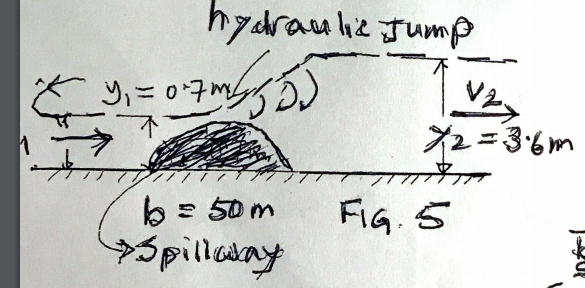 hydraulic Jump
y₁ = 0.7m
V₂
1
y₂ = 3.6m
b = 50m
FIG. 5
Spillway